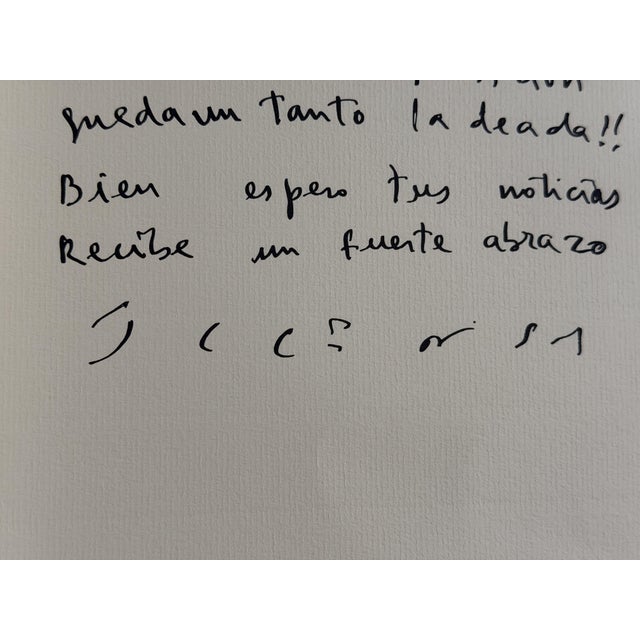 queda un tanto la deada!!
Bien espero tus noticias
Recibe un fuerte abrazo